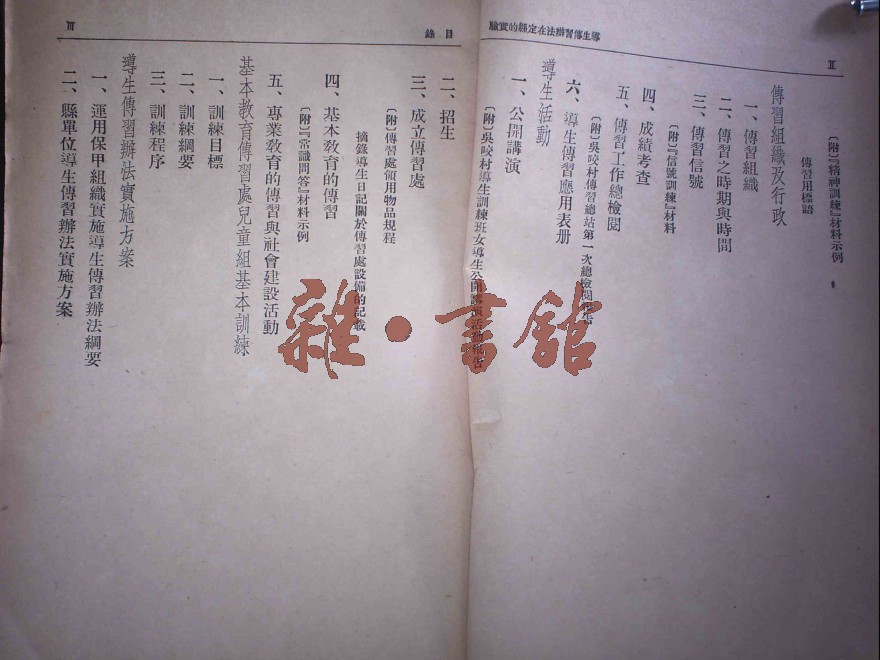 II
導生傳習辦法在定縣的實驗
〔附〕『精神訓練』材料示例
傳習用標語
傳習組織及行政
一、傳習組織
二、傳習之時期與時間
三、傳習信號
〔附〕『信號訓練』材料
四、成績考查
五、傳習工作總檢閱
〔附〕吳咬村傳習總站第一次總檢閱報告
六、導生傳習應用表册
導生活動
一、公開講演
〔附〕吳咬村導生訓練班女導生公開講演活動報告
目錄
III
二、招生
三、成立傳習處
〔附〕傳習處領用物品規程
摘錄導生日記關於傳習處設備的記載
四、基本教育的傳習
〔附〕『常識問答』材料示例
五、專業教育的傳習與社會建設活動
基本教育傳習處兒童組基本訓練
一、訓練目標
二、訓練綱要
三、訓練程序
導生傳習辦法實施方案
一、運用保甲組織實施導生傳習辦法綱要
二、縣單位導生傳習辦法實施方案
雜·書館